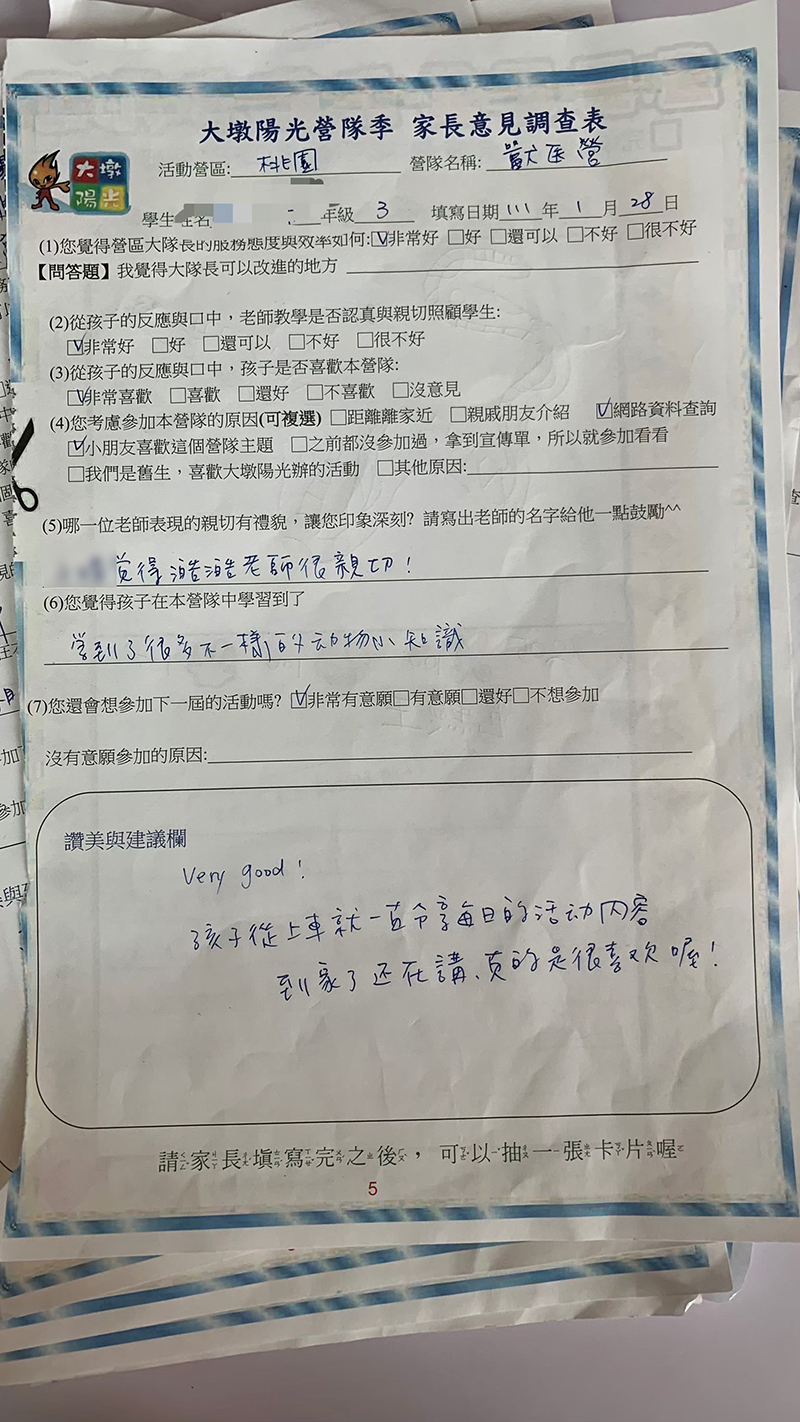 大墩陽光營隊季 家長意見調查表
大墩
陽光
活動營區: 桃園 營隊名稱: 獸医營
學生姓名 年級 3 填寫日期 111 年 1 月 28 日
(1)您覺得營區大隊長的服務態度與效率如何:☑非常好 □好 □還可以 □不好 □很不好
【問答題】我覺得大隊長可以改進的地方
(2)從孩子的反應與口中，老師教學是否認真與親切照顧學生:
☑非常好 □好 □還可以 □不好 □很不好
(3)從孩子的反應與口中，孩子是否喜歡本營隊:
☑非常喜歡 □喜歡 □還好 □不喜歡 □沒意見
(4)您考慮參加本營隊的原因(可複選) □距離離家近 □親戚朋友介紹 ☑網路資料查詢
☑小朋友喜歡這個營隊主題 □之前都沒參加過，拿到宣傳單，所以就參加看看
□我們是舊生，喜歡大墩陽光辦的活動 □其他原因:
(5)哪一位老師表現的親切有禮貌，讓您印象深刻? 請寫出老師的名字給他一點鼓勵^^
覚得浩浩老師很親切！
(6)您覺得孩子在本營隊中學習到了
学到了很多不一樣的动物小知識
(7)您還會想參加下一屆的活動嗎? ☑非常有意願□有意願□還好□不想參加
沒有意願參加的原因:
讚美與建議欄
Very good！
孩子從上車就一直分享每日的活动內容
到家了还在講、真的是很喜欢喔！
請家長填寫完之後， 可以抽一張卡片喔
5